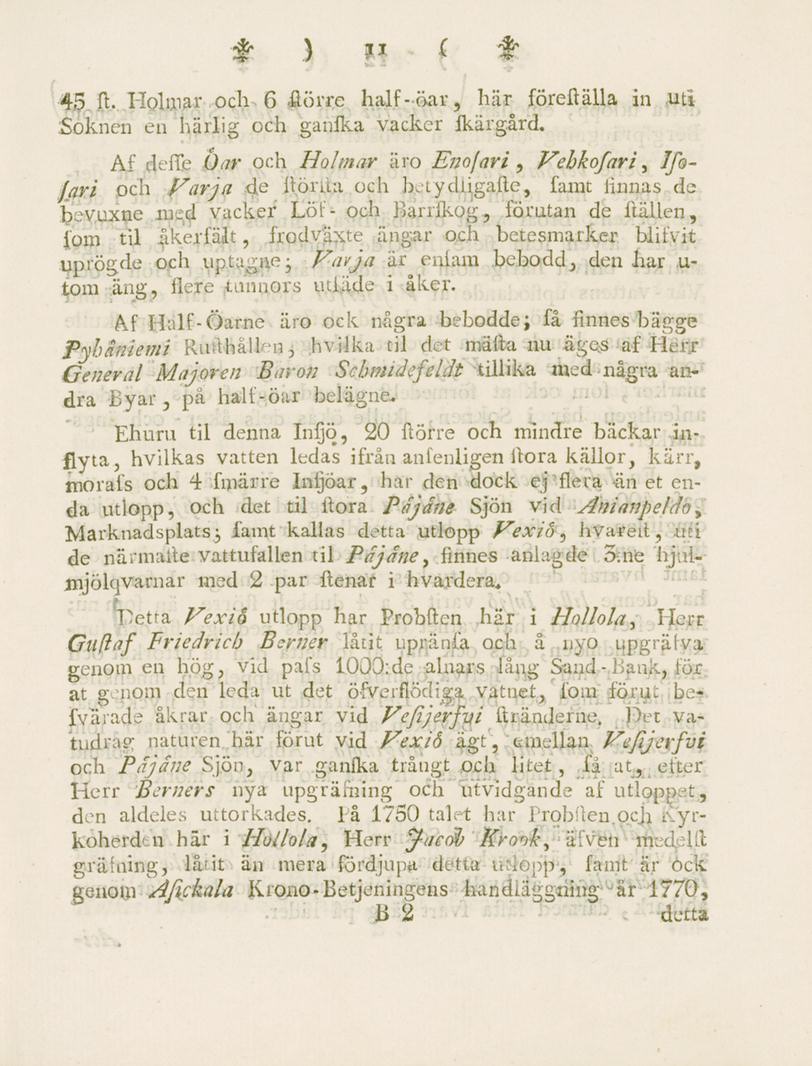 * ) 11 ( *
45 ſt. Holmar och 6 ſtörre half-öar, här föreſtälla in uti
Soknen en härlig och ganſka vacker ſkärgård.
Af deſſe Öar och Holmar äro Enoſari, Vehkoſari, Iſo-
ſari och Varja de ſtörſta och betydligaſte, ſamt finnas de
bevuxne med vacker Löf- och Barrſkog, förutan de ſtällen,
ſom til åkerfält, frodväxte ängar och betesmarker blifvit
uprögde och uptagne; Varja är enſam bebodd, den har u-
tom äng, flere tunnors utſäde i åker.
Af Half-Öarne äro ock några bebodde; ſå finnes bägge
Pyhäniemi Ruſthållen, hvilka til det mäſta nu äges af Herr
General Majoren Baron Schmidefeldt tillika med några an-
dra Byar, på half-öar belägne.
Ehuru til denna Inſjö, 20 ſtörre och mindre bäckar in-
flyta, hvilkas vatten ledas ifrån anſenligen ſtora källor, kärr,
moraſs och 4 ſmärre Inſjöar, har den dock ej flera än et en-
da utlopp, och det til ſtora Päjäne Sjön vid Anianpeldo,
Marknadsplats; ſamt kallas detta utlopp Vexiö, hvareſt, uti
de närmaſte vattufallen til Päjäne, finnes anlagde 3:ne hjul-
mjölqvarnar med 2 par ſtenar i hvardera.
Detta Vexiö utlopp har Probſten här i Hollola, Herr
Guſtaf Friedrich Berner låtit upränſa och å nyo upgräfva
genom en hög, vid paſs 1000:de alnars lång Sand-Bank, för
at genom den leda ut det öfverflödiga vatnet, ſom förut be-
ſvärade åkrar och ängar vid Veſijerfvi ſtränderne. Det va-
tudrag naturen här förut vid Vexiö ägt, emellan Veſijerfvi
och Päjäne Sjön, var ganſka trångt och litet, ſå at, efter
Herr Berners nya upgräfning och utvidgande af utloppet,
den aldeles uttorkades. På 1750 talet har Probſten och Kyr-
koherden här i Hollola, Herr Jacob Krook, äfven medelſt
gräfning, låtit än mera fördjupa detta utlopp, ſamt är ock
genom Aſickala Krono-Betjeningens handläggning år 1770,
B 2 detta